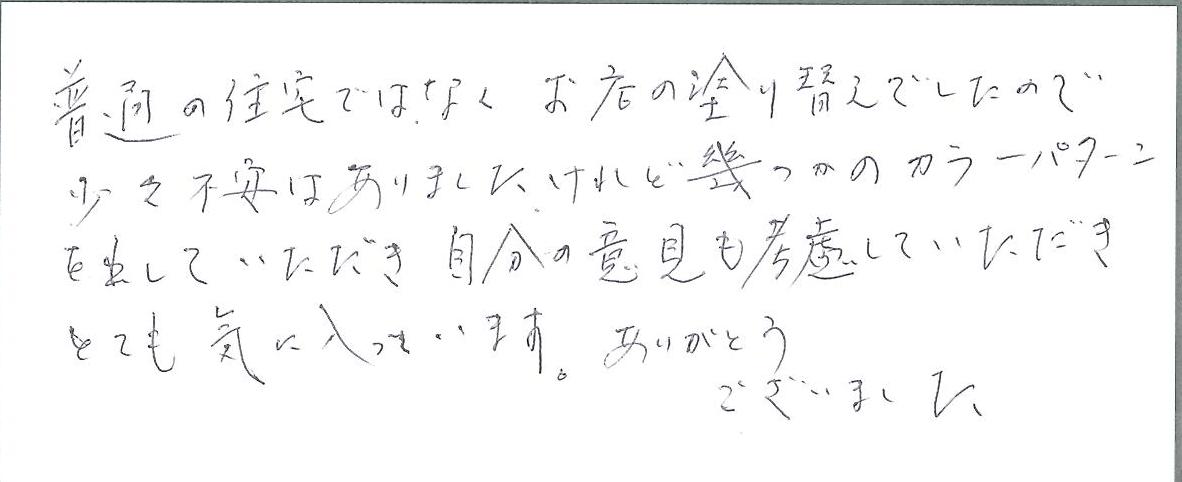 普通の住宅ではなく お店の塗り替えでしたので
少々不安はありましたけれど幾つかのカラーパターン
を出していただき 自分の意見も考慮していただき
とても気に入っています。ありがとう
ございました